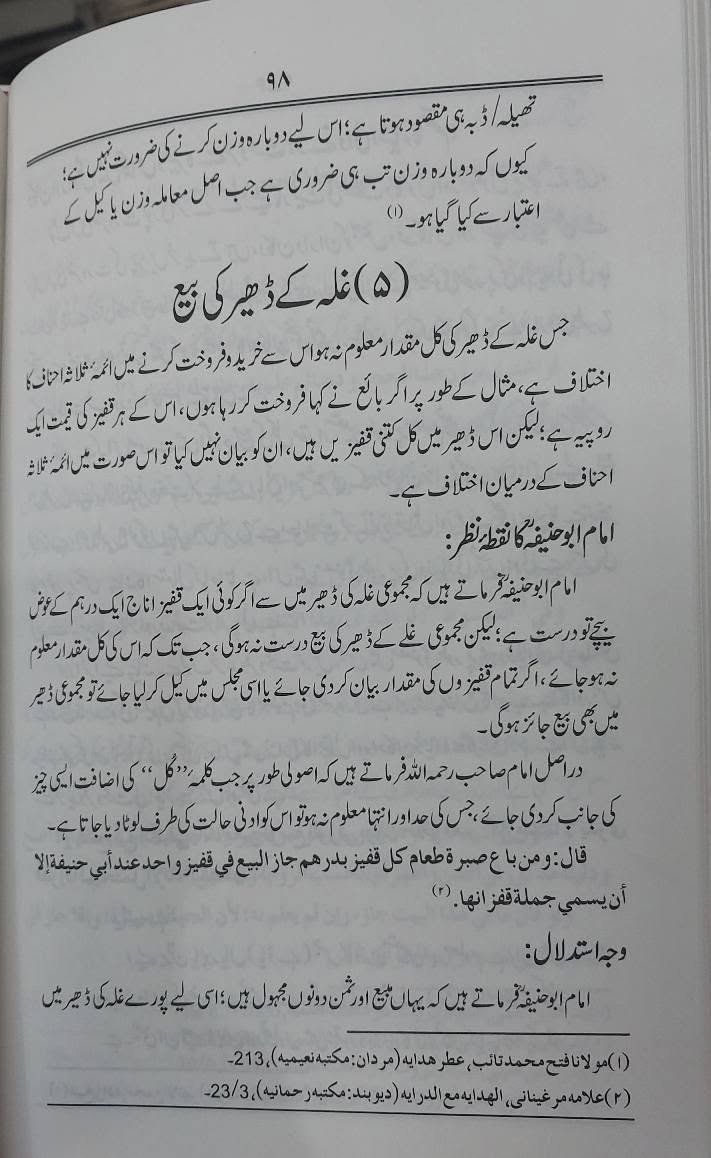 ۹۸
تھیلہ/ ڈبہ ہی مقصود ہوتا ہے؛ اس لیے دوبارہ وزن کرنے کی ضرورت نہیں ہے؛
کیوں کہ دوبارہ وزن تب ہی ضروری ہے جب اصل معاملہ وزن یا کیل کے
اعتبار سے کیا گیا ہو۔(۱)
(۵) غلہ کے ڈھیر کی بیع
جس غلہ کے ڈھیر کی کل مقدار معلوم نہ ہو اس سے خرید و فروخت کرنے میں ائمۂ ثلاثہ احناف کا
اختلاف ہے، مثال کے طور پر اگر بائع نے کہا فروخت کر رہا ہوں، اس کے ہر قفیز کی قیمت ایک
روپیہ ہے؛ لیکن اس ڈھیر میں کل کتنی قفیزیں ہیں، ان کو بیان نہیں کیا تو اس صورت میں ائمۂ ثلاثہ
احناف کے درمیان اختلاف ہے۔
امام ابوحنیفہؒ کا نقطۂ نظر:
امام ابوحنیفہؒ فرماتے ہیں کہ مجموعی غلہ کی ڈھیر میں سے اگر کوئی ایک قفیز اناج ایک درہم کے عوض
بیچے تو درست ہے؛ لیکن مجموعی غلے کے ڈھیر کی بیع درست نہ ہوگی، جب تک کہ اس کی کل مقدار معلوم
نہ ہو جائے، اگر تمام قفیزوں کی مقدار بیان کردی جائے یا اسی مجلس میں کیل کرلیا جائے تو مجموعی ڈھیر
میں بھی بیع جائز ہوگی۔
دراصل امام صاحب رحمہ اللہ فرماتے ہیں کہ اصولی طور پر جب کلمۂ ”کُل“ کی اضافت ایسی چیز
کی جانب کردی جائے، جس کی حد اور انتہا معلوم نہ ہو تو اس کو ادنی حالت کی طرف لوٹا دیا جاتا ہے۔
قال: ومن باع صبرة طعام كل قفيز بدرهم جاز البيع في قفيز واحد عند أبي حنيفة إلا
أن يسمي جملة قفزانها. (۲)
وجہ استدلال:
امام ابوحنیفہؒ فرماتے ہیں کہ یہاں مبیع اور ثمن دونوں مجہول ہیں؛ اسی لیے پورے غلہ کی ڈھیر میں
(۱) مولانا فتح محمد تائب، عطر هدایه (مردان: مکتبه نعیمیه)، 213۔
(۲) علامه مرغینانی، الهدایه مع الدرایه (دیوبند: مکتبه رحمانیه)، 23/3۔